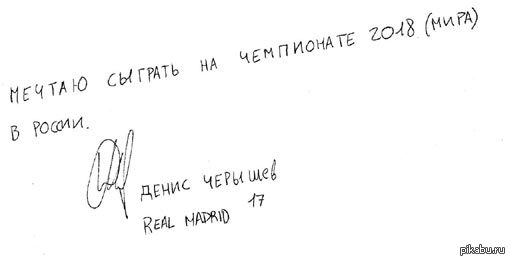 МЕЧТАЮ СЫГРАТЬ НА ЧЕМПИОНАТЕ 2018 (МИРА)
В РОССИИ.
ДЕНИС ЧЕРЫШЕВ
REAL MADRID 17
pikabu.ru